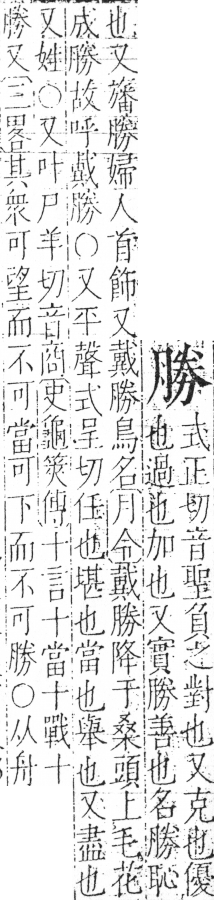 勝
式正切音聖負之對也又克也優
也過也加也又實勝善也名勝恥
也又旛勝婦人首飾又戴勝鳥名月令戴勝降于桑頭上毛花
成勝故呼戴勝○又平聲式呈切任也堪也當也舉也又盡也
又姓○又叶尸羊切音商史龜筴傳十言十當十戰十
勝又三畧其衆可望而不可當可下而不可勝○从舟